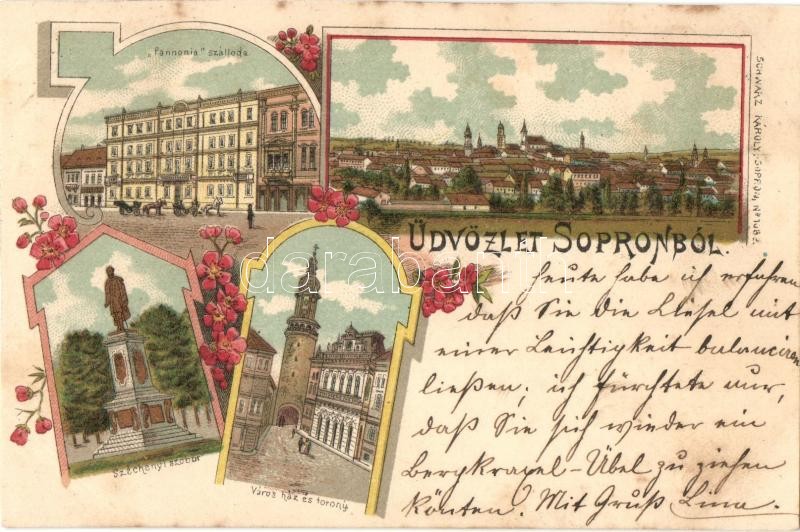 „Pannonia" szálloda
SCHWARZ KÁROLY, SOPRON, No 1082.
ÜDVÖZLET SOPRONBÓL.
darabanth
Széchenyi szobor
Város ház és torony
heute habe ich erfahren
daß Sie die Liesel mit
einer Leichtigkeit balanciren
ließen; ich fürchtete nur,
daß Sie sich wieder ein
Bergkraxel-Übel zu ziehen
könten. Mit Gruß Lina.